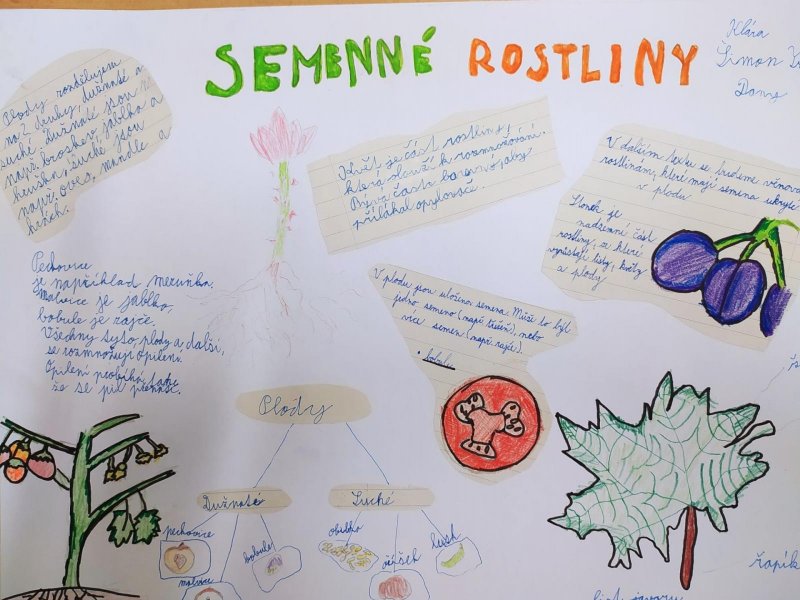 SEMENNÉ ROSTLINY
Klára
Šimon
Plody rozdělujem
na 2 druhy, dužnaté a
suché. Dužnaté jsou
např. broskev, jablko a
hruška. Suché jsou
např. oves, mandle a
hrách.
Květ je část rostliny,
která slouží k rozmnožování.
Bývá často barevný, aby
přilákal opylovače.
V dalším textu se budeme věnovat
rostlinám, které mají semena ukryté
v plodu
Stonek je
nadzemní část
rostliny, ze které
vyrůstají listy, květy
a plody
Peckovice
je například meruňka.
Malvice je jablko,
bobule je rajče.
Všechny tyto plody a další,
se rozmnožují opilení.
Opilení probíhá
že se pil přenáší.
V plodu jsou uložena semena. Může to být
jedno semeno (např. třešeň), nebo
více semen (např. rajče).
• bobule
Plody
Dužnaté
Suché
peckovice
bobule
malvice
obilka
oříšek
lusk
řapík
list javoru